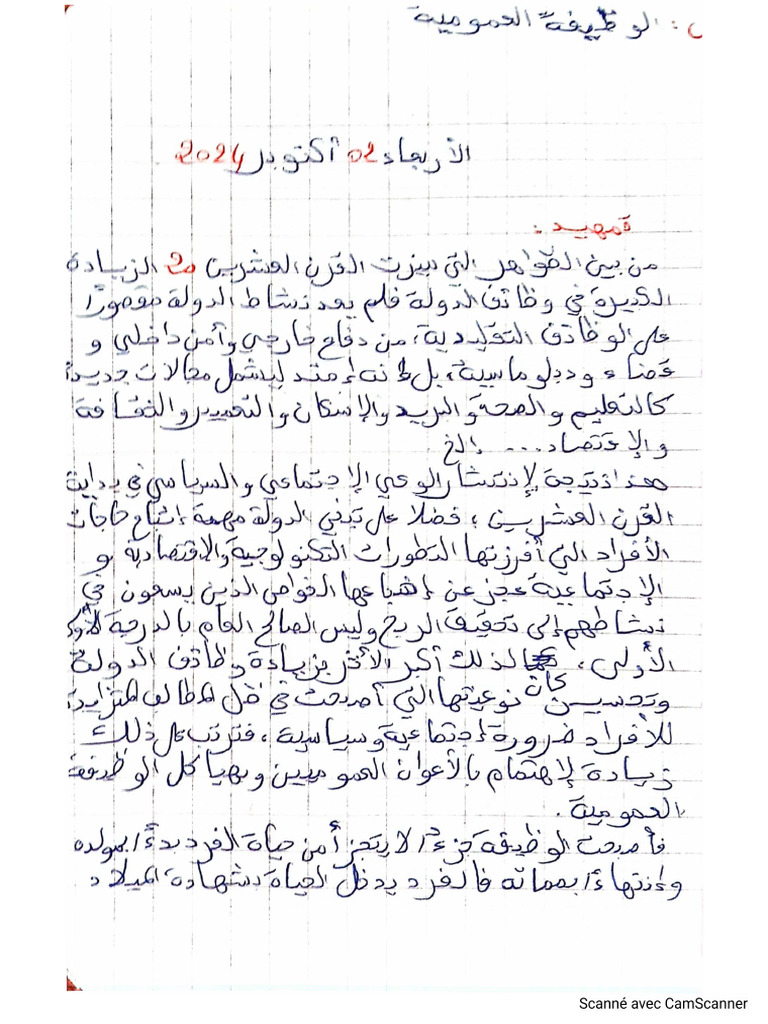 : الوظيفة العمومية
الأربعاء 02 أكتوبر 2024
تمهيد :
من بين الظواهر التي ميزت القرن العشرين 20 الزيادة
الكبيرة في وظائف الدولة فلم يعد نشاط الدولة مقصورًا
على الوظائف التقليدية، من دفاع خارجي وأمن داخلي و
قضاء ودبلوماسية، بل انه إمتد ليشمل مجالات جديدة
كالتعليم والصحة والبريد والإسكان والتعمير والثقافة
والإقتصاد.... إلخ
هذا نتيجة لإنتشار الوعي الإجتماعي والسياسي في بداية
القرن العشرين، فضلا على تبني الدولة مهمة إشباع حاجات
الأفراد التي أفرزتها التطورات التكنولوجية والاقتصادية و
الإجتماعية عجز عن إشباعها الخواص الذين يسعون في
نشاطهم إلى تحقيق الربح وليس الصالح العام بالدرجة
الأولى، لذلك أكبر الأثر بزيادة وظائف الدولة
وتحسين كان نوعيتها التي أصبحت في ظل المطالب المتزايدة
للأفراد ضرورة إجتماعية وسياسية، فترتب على ذلك
زيادة لإهتمام بالأعوان العموميين وبهياكل الوظيفة
العمومية.
فأصبحت الوظيفة جزءًا لا يتجزأ من حياة الفرد بدءًا بمولده
وإنتهاءًا بمماته فالفرد يدخل الحياة بشهادة الميلاد
Scanné avec CamScanner